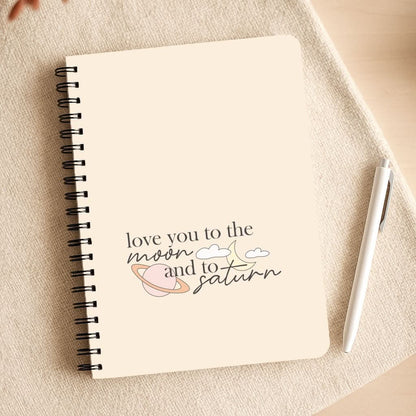 love you to the
moon
and to
saturn